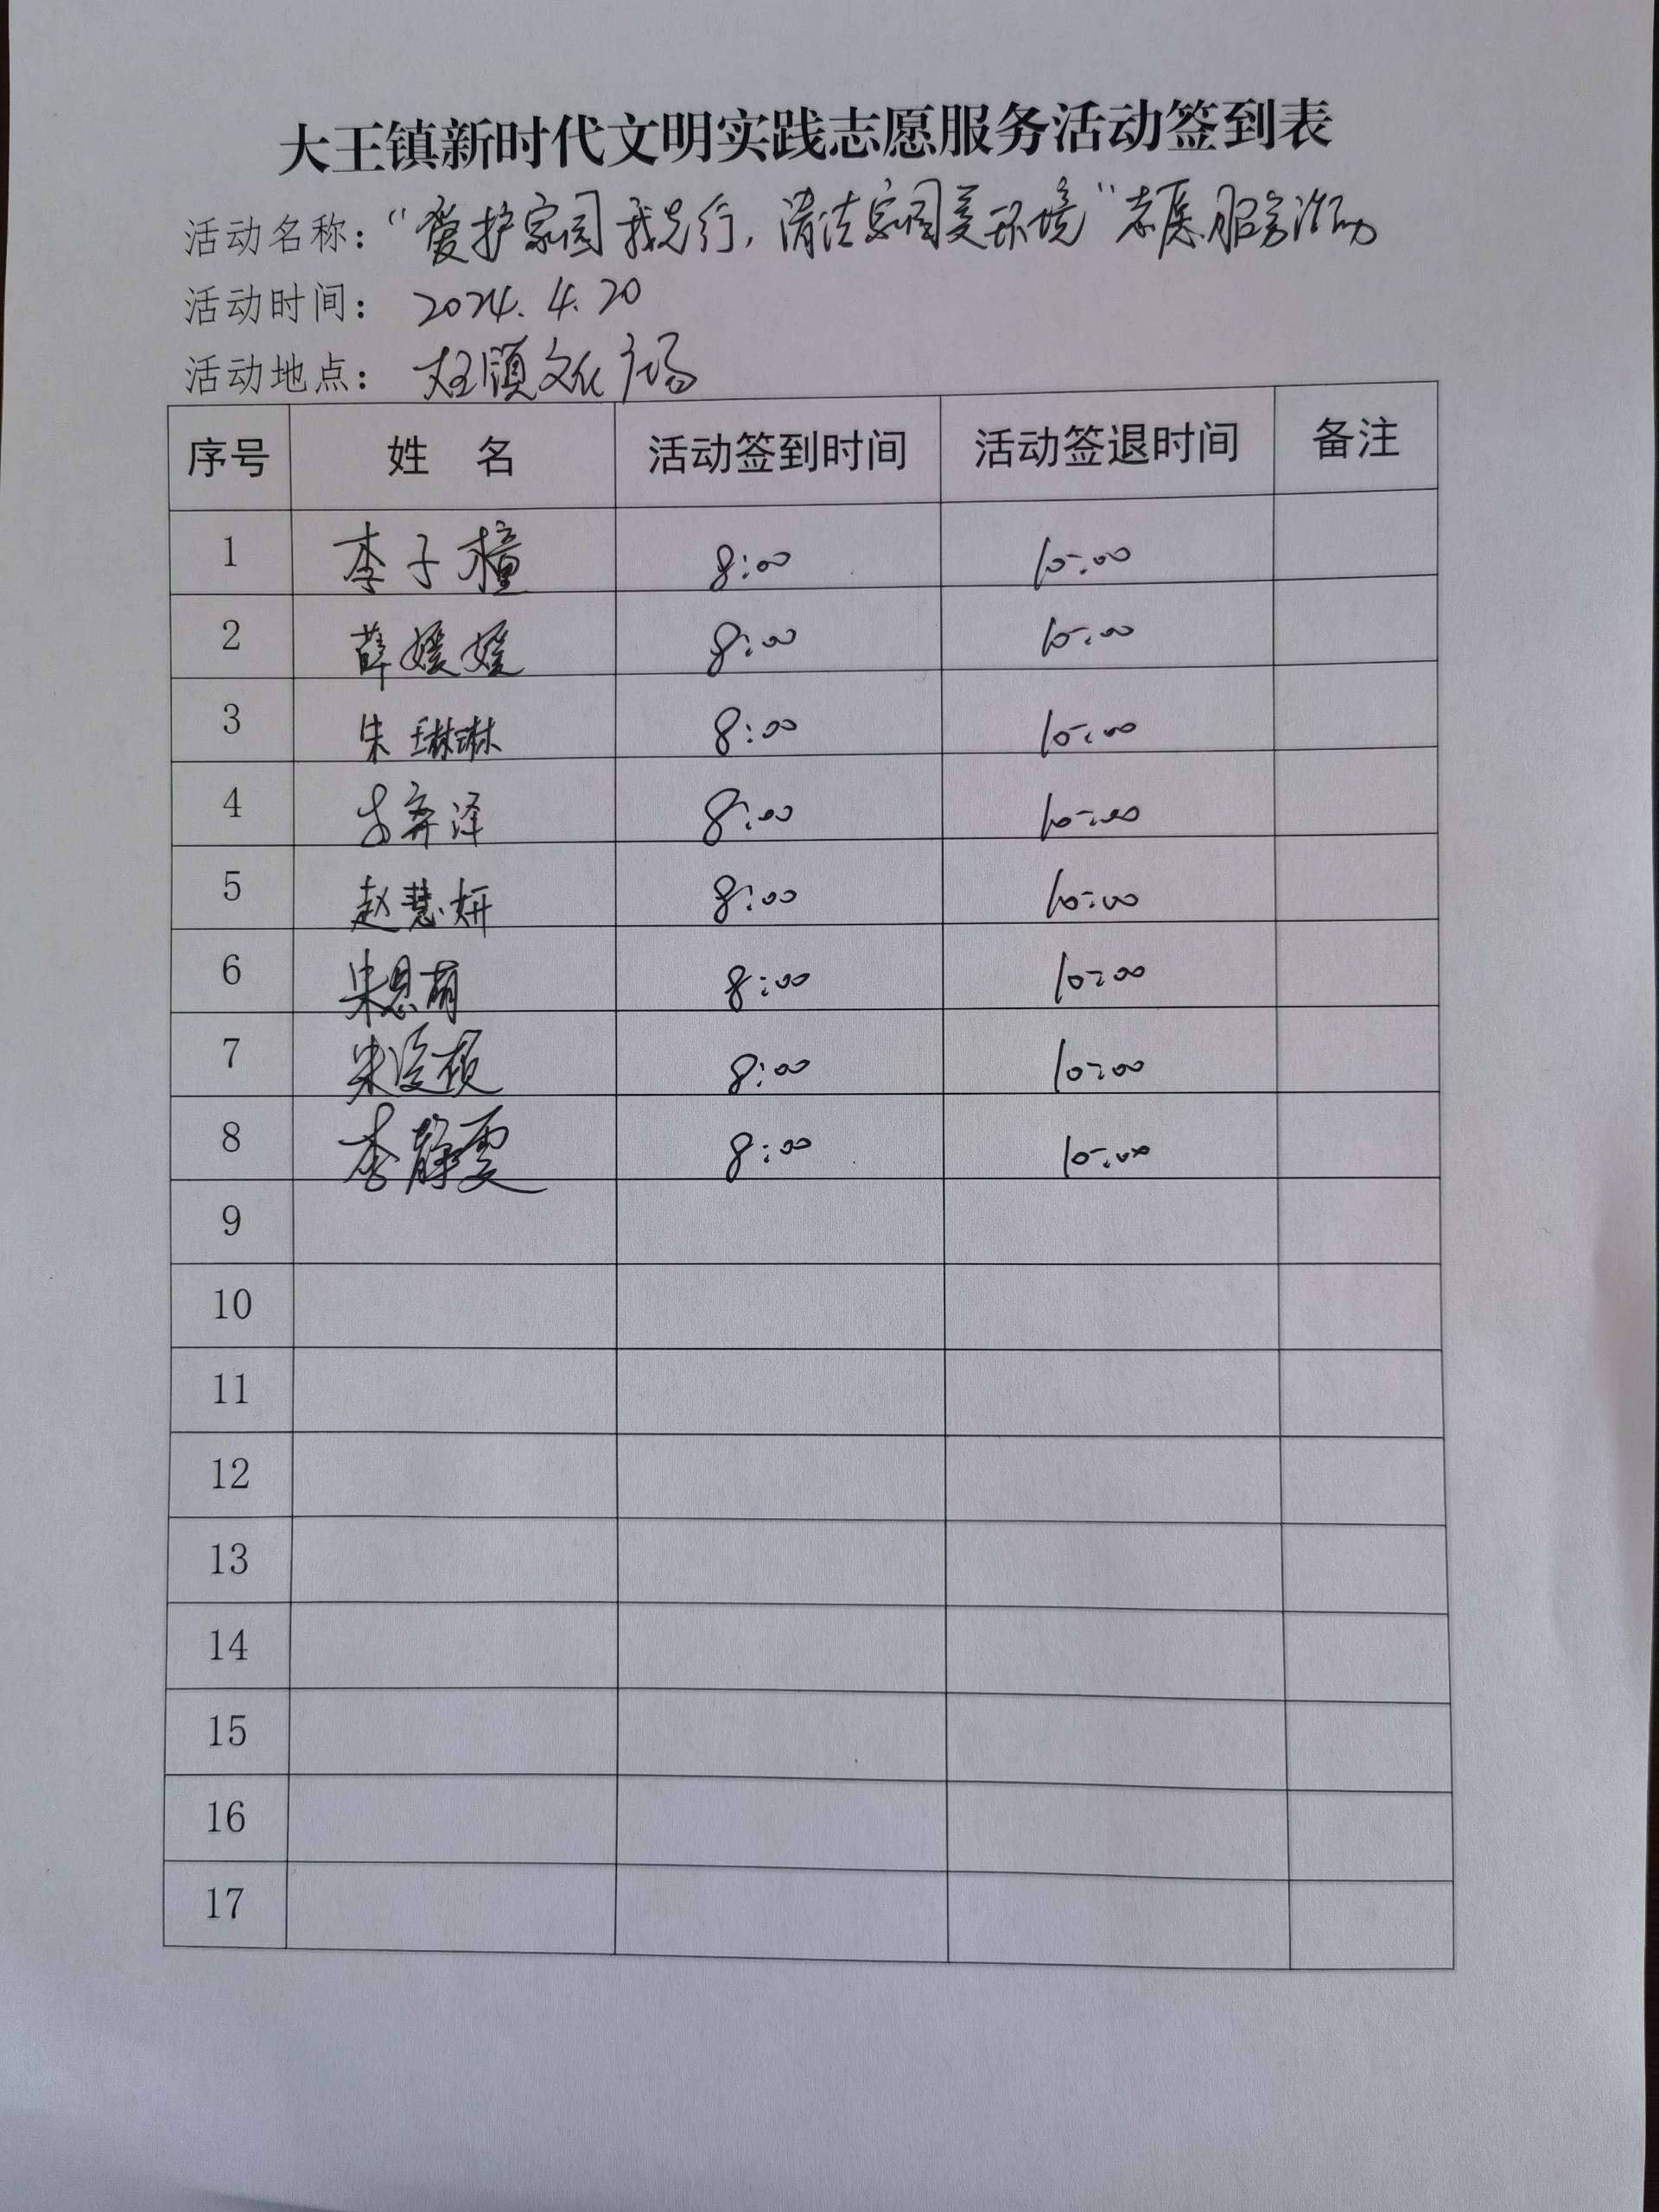 大王镇新时代文明实践志愿服务活动签到表
活动名称：“爱护家园我先行，清洁家园美环境”志愿服务活动
活动时间：2024.4.20
活动地点：大王镇文化广场
序号 姓 名 活动签到时间 活动签退时间 备注
1 李子橦 8:00 10:00
2 薛媛媛 8:00 10:00
3 朱琳琳 8:00 10:00
4 8:00 10:00
5 赵慧妍 8:00 10:00
6 朱恩萌 8:00 10:00
7 8:00 10:00
8 李静雯 8:00 10:00
9
10
11
12
13
14
15
16
17